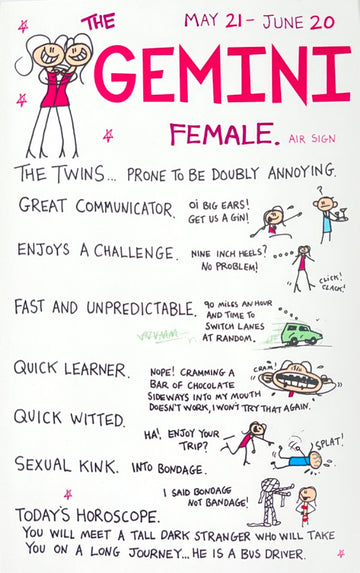 THE
MAY 21 - JUNE 20
GEMINI
FEMALE.
AIR SIGN
THE TWINS... PRONE TO BE DOUBLY ANNOYING.
GREAT COMMUNICATOR.
OI BIG EARS!
GET US A GIN!
?
ENJOYS A CHALLENGE.
NINE INCH HEELS?
NO PROBLEM!
CLICK!
CLACK!
FAST AND UNPREDICTABLE.
90 MILES AN HOUR
AND TIME TO
SWITCH LANES
AT RANDOM.
QUICK LEARNER.
CRAM!
NOPE! CRAMMING A
BAR OF CHOCOLATE
SIDEWAYS INTO MY MOUTH
DOESN'T WORK, I WON'T TRY THAT AGAIN.
QUICK WITTED.
HA! ENJOY YOUR
TRIP?
SPLAT!
SEXUAL KINK. INTO BONDAGE.
I SAID BONDAGE
NOT BANDAGE!
TODAY'S HOROSCOPE.
YOU WILL MEET A TALL DARK STRANGER WHO WILL TAKE
YOU ON A LONG JOURNEY... HE IS A BUS DRIVER.